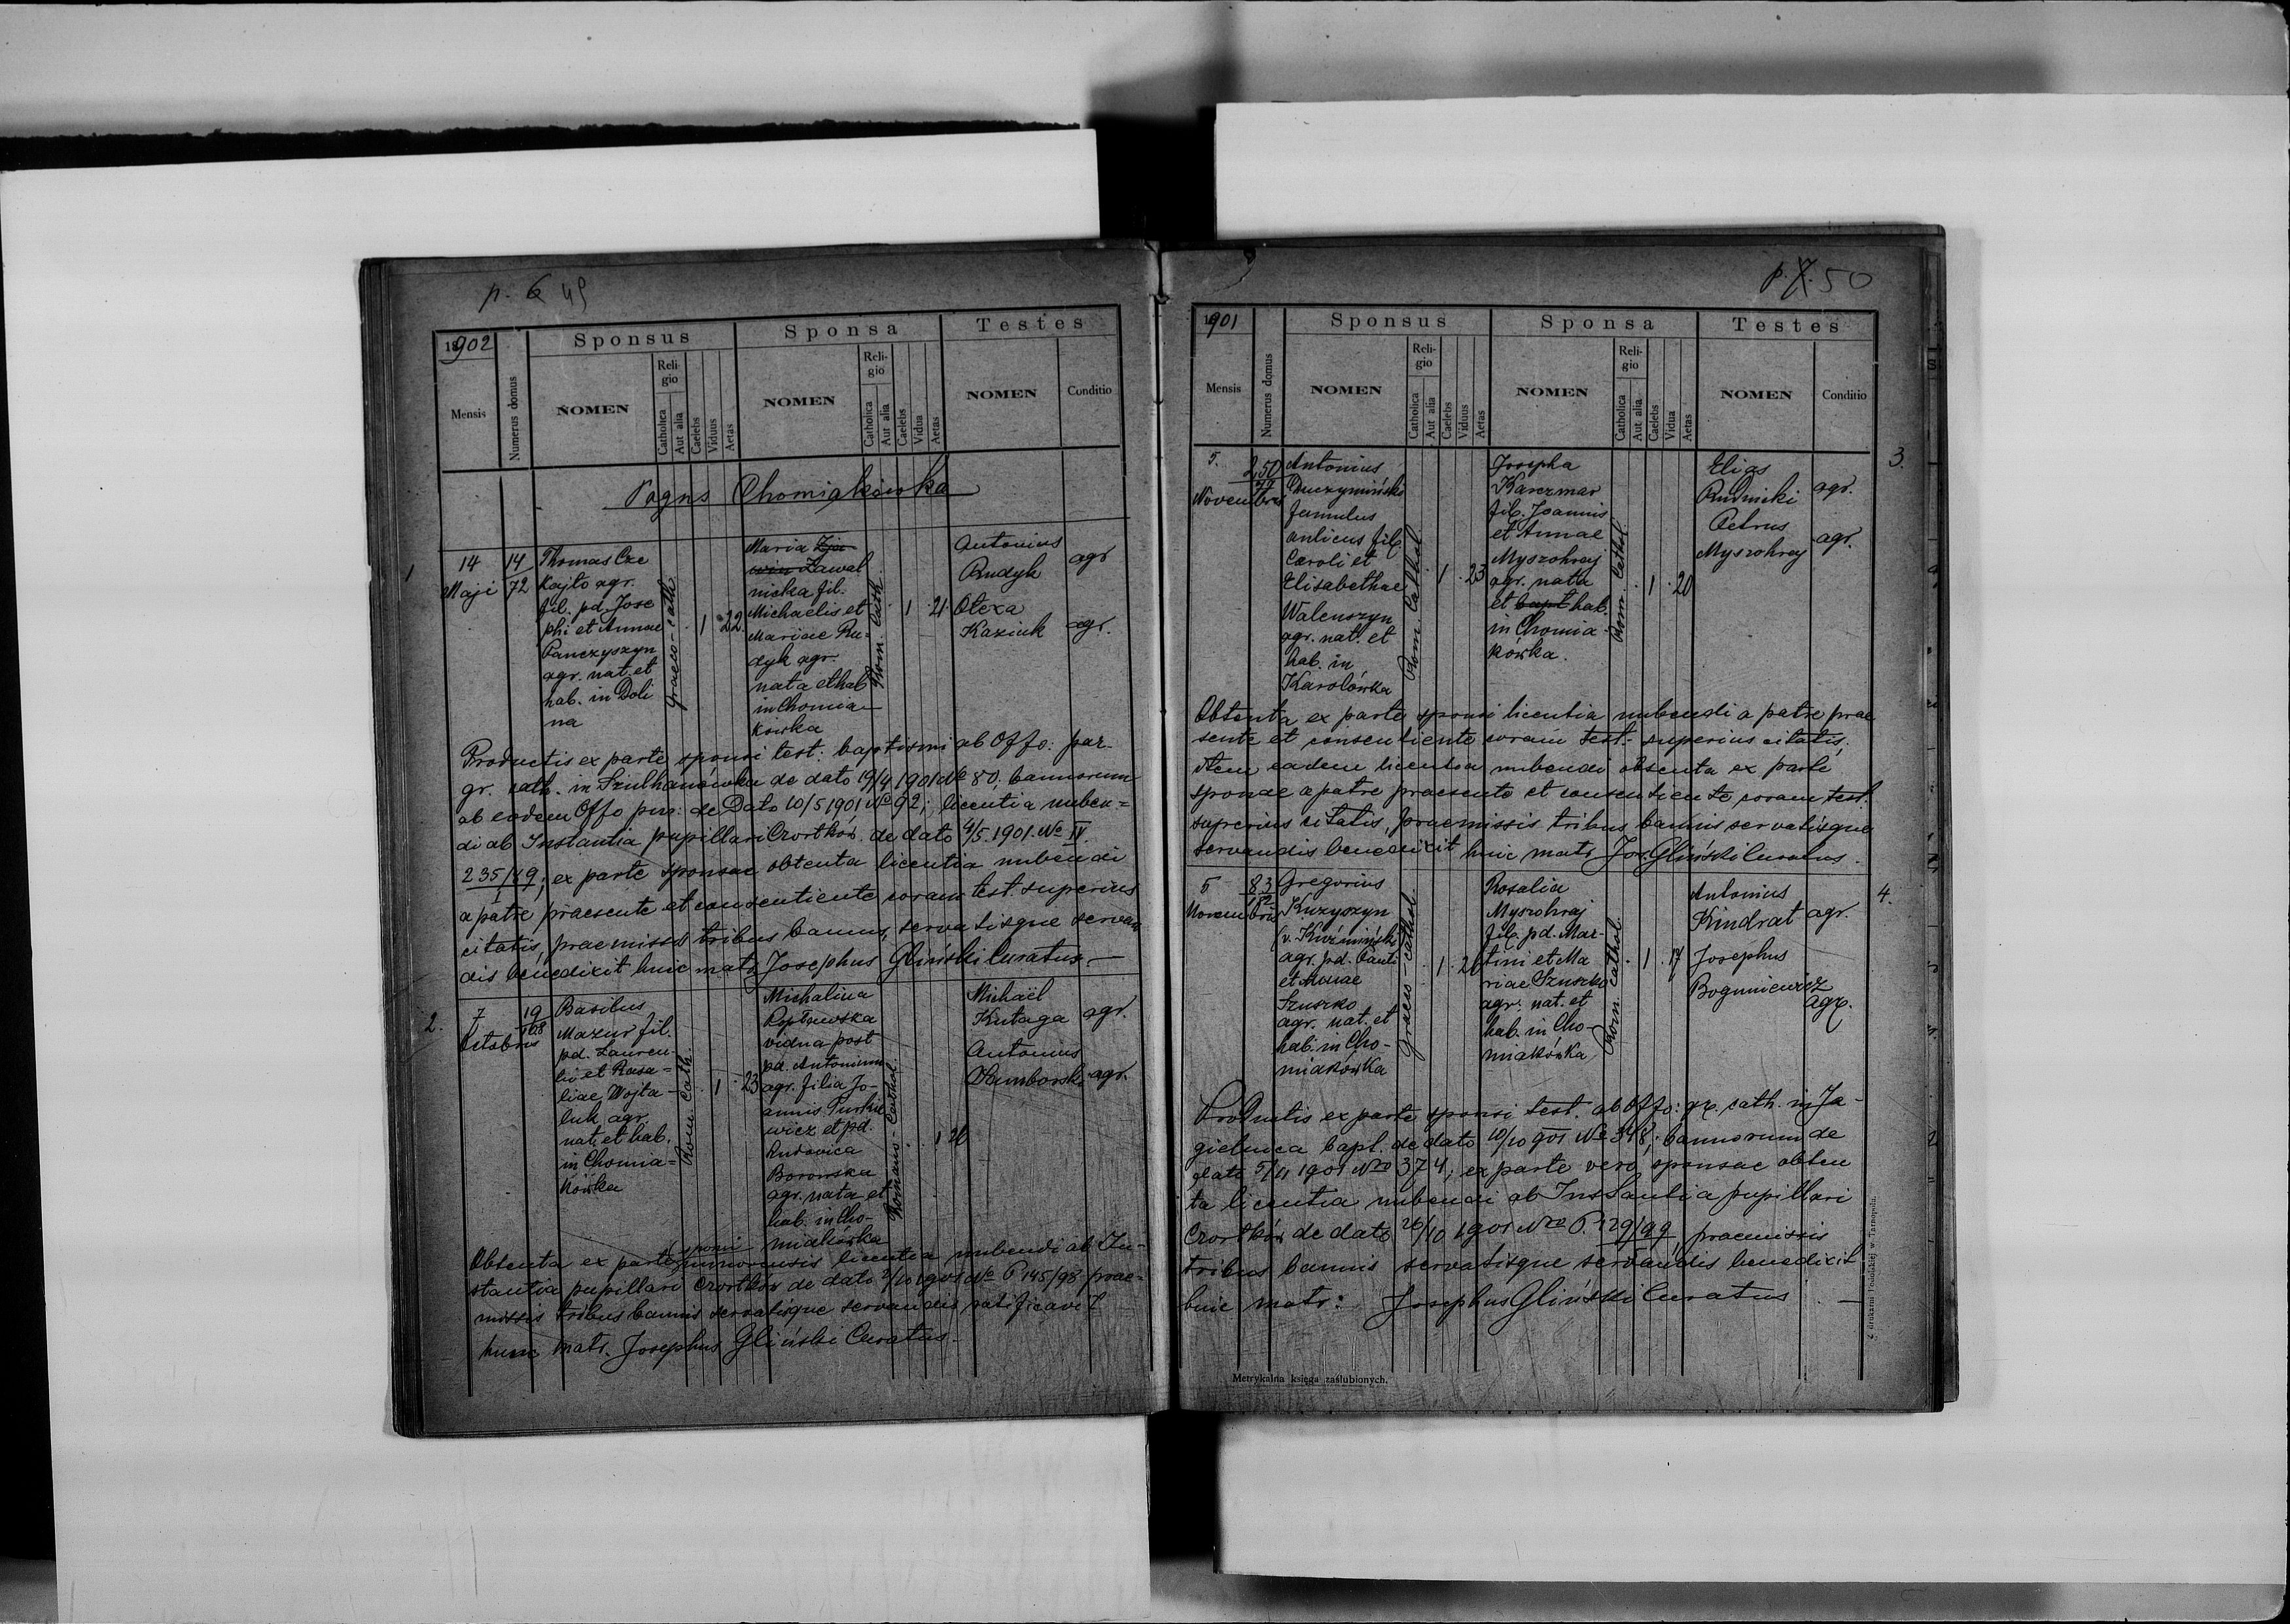 p. 6 49
18902
Mensis
Numerus domus
Sponsus
NOMEN
Religio
Catholica
Aut alia
Caelebs
Viduus
Aetas
Sponsa
NOMEN
Religio
Catholica
Aut alia
Caelebs
Vidua
Aetas
Testes
NOMEN
Conditio
Pagus Chomiakówka
1
14
Maji
14
72
Thomas Cze
kajło agr.
fil. pd. Jose
phi et Annae
Panczyszyn
agr. nat. et
hab. in Doli
na
Graeco-cath
1
22.
Maria
Zawal
nicka fil.
Michaelis et
Mariae Ru=
dyk agr.
nata et hab
in Chomia-
kówka
Rom. Cath.
1
21
Antonius
Rudyk
agr
Olexa
Kaziuk
agr.
Productis ex parte sponsi test: baptismi ab Offo: par.
gr. cath. in Szulhanówka de dato 19/4 1901 No 80, bannorum
ab eodem Offo par: de Dato 10/5 1901 No 92; licentia nuben=
di ab Instantia pupillari Czortków de dato 4/5.1901. No IV.
235/49; ex parte sponsae obtenta licentia nubendi
a patre praesente et consentiente coram test. superius
citatis, praemissis tribus bannis, servatisque servan
dis benedixit huic matr. Josephus Gliński Curatus.—
2.
7
Octobris
19
108
Basilius
Mazur fil.
pd. Lauren
tii et Rosa=
liae Wojta-
luk agr.
nat. et hab.
in Chomia=
kówka
Rom. Cath.
1
23
Michalina
Popławska
vidua post
pd. Antonium
agr. filia Jo-
annis Turkie
wicz et pd.
Ludovica
Borowska
agr. nata et
hab. in Cho-
miakówka
Romano-Cathol.
1
26
Michaël
Kutaga
agr.
Antonius
Dumborski
agr.
Obtenta ex parte sponsi minorensis licentia nubendi ab In-
stantia pupillari Czortków de dato 2/10 1901 No P 145/98 prae=
missis tribus bannis servatisque servandis ratificavit
hunc matr. Josephus Gliński Curatus.
p. 7. 50
1901
Mensis
Numerus domus
Sponsus
NOMEN
Religio
Catholica
Aut alia
Caelebs
Viduus
Aetas
Sponsa
NOMEN
Religio
Catholica
Aut alia
Caelebs
Vidua
Aetas
Testes
NOMEN
Conditio
3.
5.
Novembris
250
79
Antonius
Duczymiński
famulus
aulicus fil.
Caroli et
Elisabethae
Walenszyn
agr. nat. et
hab. in
Karolówka
Rom. Cathol.
1
23
Josepha
Karczmar
fil. Joannis
et Annae
Myszohraj
agr. nata
et bapt hab.
in Chomia-
kówka.
Rom. Cathol.
1
20
Elias
Rudnicki
agr.
Petrus
Myszohraj
agr.
Obtenta ex parte sponsi licentia nubendi a patre prae
sente et consentiente coram test. superius citatis,
item eadem licentia nubendi obtenta ex parte
sponsae a patre praesente et consentiente coram test.
superius citatis, praemissis tribus bannis servatisque
servandis benedixit huic matr. Jos. Gliński Curatus.
4.
5
Novembris
83
Gregorius
Kuzyszyn
(v. Kuźmiński
agr. pd. Pauli
et Annae
Szuszko
agr. nat. et
hab. in Cho-
miakówka
Graeco-cathol.
1
26
Rosalia
Myszohraj
fil. pd. Mar-
tini et Ma
riae Szuszko
agr. nat. et
hab. in Cho-
miakówka
Rom. Cathol.
1
17
Antonius
Kindrat
agr.
Josephus
Boguniewicz
agr.
Productis ex parte sponsi test. ab Offo: gr. cath. in Ja-
gielnica bapt. de dato 10/10 901 No 348; bannorum de
dato 5/11 1901 Nro 374; ex parte vero sponsae obten
ta licentia nubendi ab Instantia pupillari
Czortków de dato 26/10 1901 Nro P. 129/99, praemissis
tribus bannis servatisque servandis benedixit
huic matr: Josephus Gliński Curatus —
Metrykalna księga zaślubionych.
Z drukarni Podolskiej w Tarnopolu.